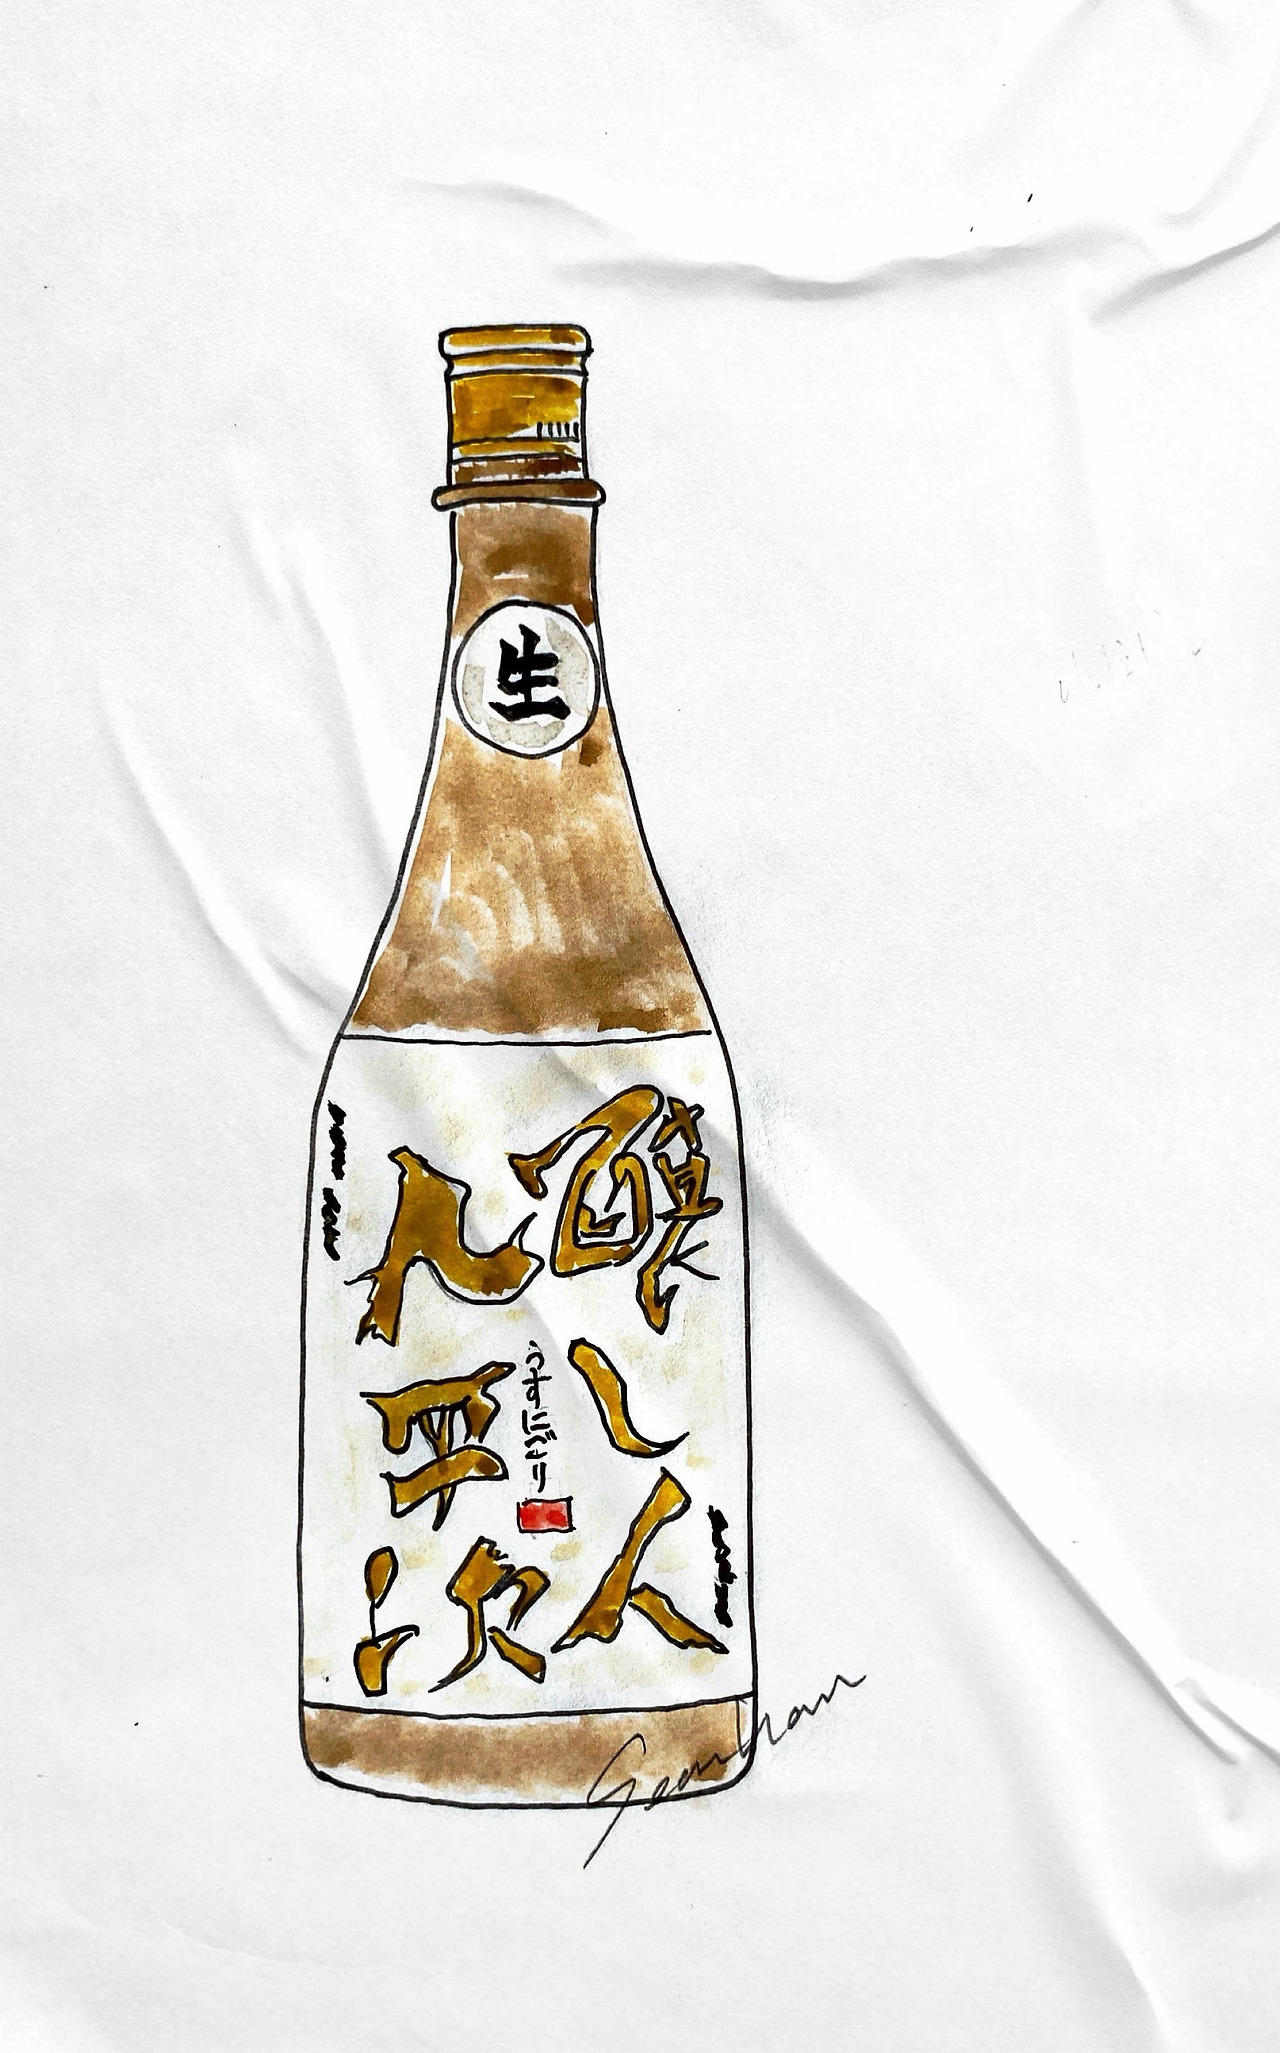 生
醸し人
九平次
うすにごり